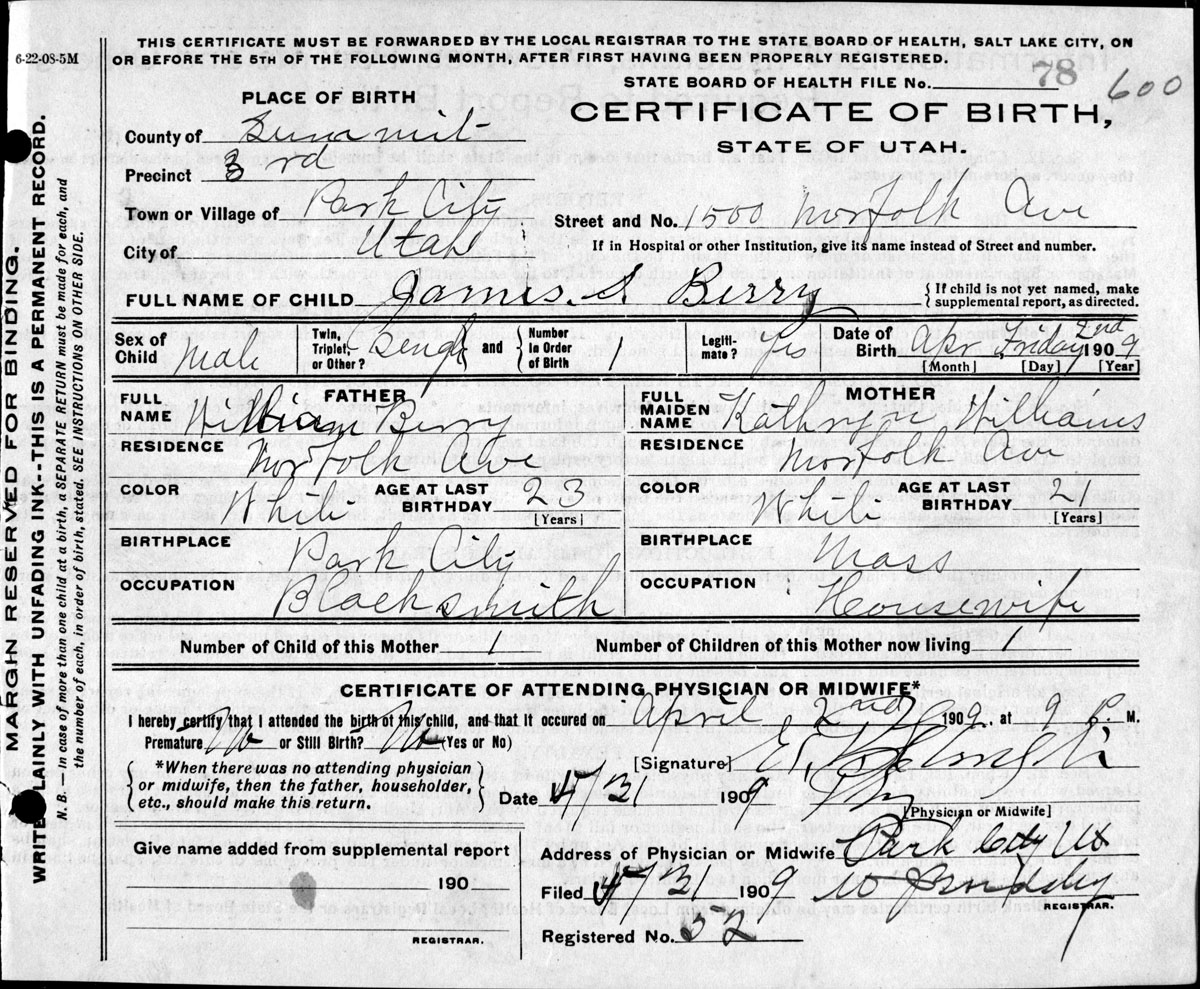 6-22-08-5M
THIS CERTIFICATE MUST BE FORWARDED BY THE LOCAL REGISTRAR TO THE STATE BOARD OF HEALTH, SALT LAKE CITY, ON
OR BEFORE THE 5TH OF THE FOLLOWING MONTH, AFTER FIRST HAVING BEEN PROPERLY REGISTERED.
78 600
STATE BOARD OF HEALTH FILE No.
PLACE OF BIRTH
CERTIFICATE OF BIRTH,
STATE OF UTAH.
County of Summit
Precinct 3rd
Town or Village of Park City
Street and No. 1500 Norfolk Ave
If in Hospital or other Institution, give its name instead of Street and number.
City of Utah
FULL NAME OF CHILD James. S Berry
If child is not yet named, make
supplemental report, as directed.
Sex of Child Male
Twin, Triplet, or Other? and
Number in Order of Birth 1
Legiti-mate? Yes
Date of Birth Apr Friday 2nd 1909
[Month] [Day] [Year]
FATHER
FULL NAME William Berry
RESIDENCE Norfolk Ave
COLOR White
AGE AT LAST BIRTHDAY 23
[Years]
BIRTHPLACE Park City
OCCUPATION Blacksmith
MOTHER
FULL MAIDEN NAME Williams
RESIDENCE Norfolk Ave
COLOR White
AGE AT LAST BIRTHDAY 2
[Years]
BIRTHPLACE Mass
OCCUPATION Housewife
Number of Child of this Mother 1
Number of Children of this Mother now living 1
CERTIFICATE OF ATTENDING PHYSICIAN OR MIDWIFE*
I hereby certify that I attended the birth of this child, and that it occured on April 2nd 1909. at 9 P. M.
Premature No or Still Birth? No (Yes or No)
[Signature]
*When there was no attending physician
or midwife, then the father, householder,
etc., should make this return.
Date 1909
[Physician or Midwife]
Give name added from supplemental report
190
REGISTRAR.
Address of Physician or Midwife Park City Ut
Filed 1909
REGISTRAR.
Registered No. 52
MARGIN RESERVED FOR BINDING.
WRITE PLAINLY WITH UNFADING INK--THIS IS A PERMANENT RECORD.
N. B. — In case of more than one child at a birth, a SEPARATE RETURN must be made for each, and
the number of each, in order of birth, stated. SEE INSTRUCTIONS ON OTHER SIDE.